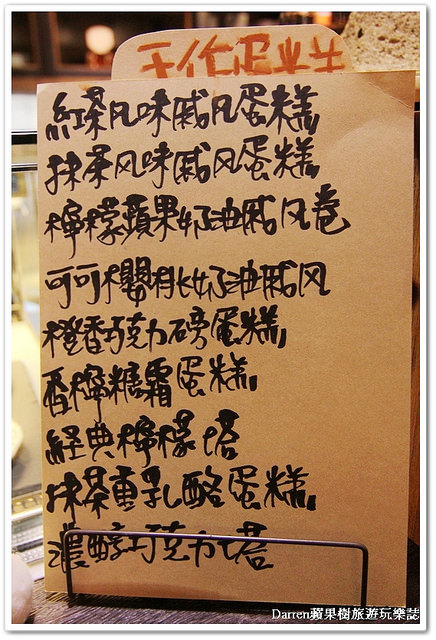 手作蛋糕
紅茶風味戚風蛋糕
抹茶風味戚風蛋糕
檸檬蘋果奶油戚風卷
可可櫻桃奶油戚風
橙香巧克力磅蛋糕
香檸糖霜蛋糕
経典檸檬塔
抹茶重乳酪蛋糕
濃醇巧克力塔
Darren蘋果樹旅遊玩樂誌